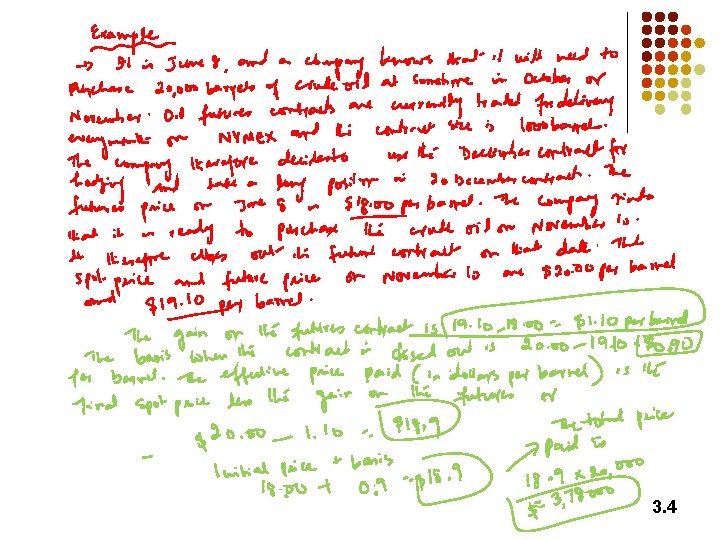 Example
→ It is June 8, and a company knows that it will need to
purchase 20,000 barrels of crude oil at sometime in October or
November. Oil futures contracts are currently traded for delivery
every month on NYMEX and the contract size is 1000 barrel.
The company therefore decides to use the December contract for
hedging and take a long position in 20 December contract. The
futures price on June 8 is $18.00 per barrel. The company finds
that it is ready to purchase the crude oil on November 10.
It therefore closes out the future contract on that date. The
spot price and future price on November 10 are $20.00 per barrel
and $19.10 per barrel.
The gain on the futures contract is 19.10 - 18.00 = $1.10 per barrel
The basis when the contract is closed out is 20.00 - 19.10 = $0.90
for barrel. The effective price paid (in dollars per barrel) is the
final spot price less the gain on the futures or
$20.00 - 1.10 = $18.9
- Initial price + basis
18.00 + 0.9 = $18.9
The total price
→ paid is
18.9 × 20,000
$ 3,78000
3.4